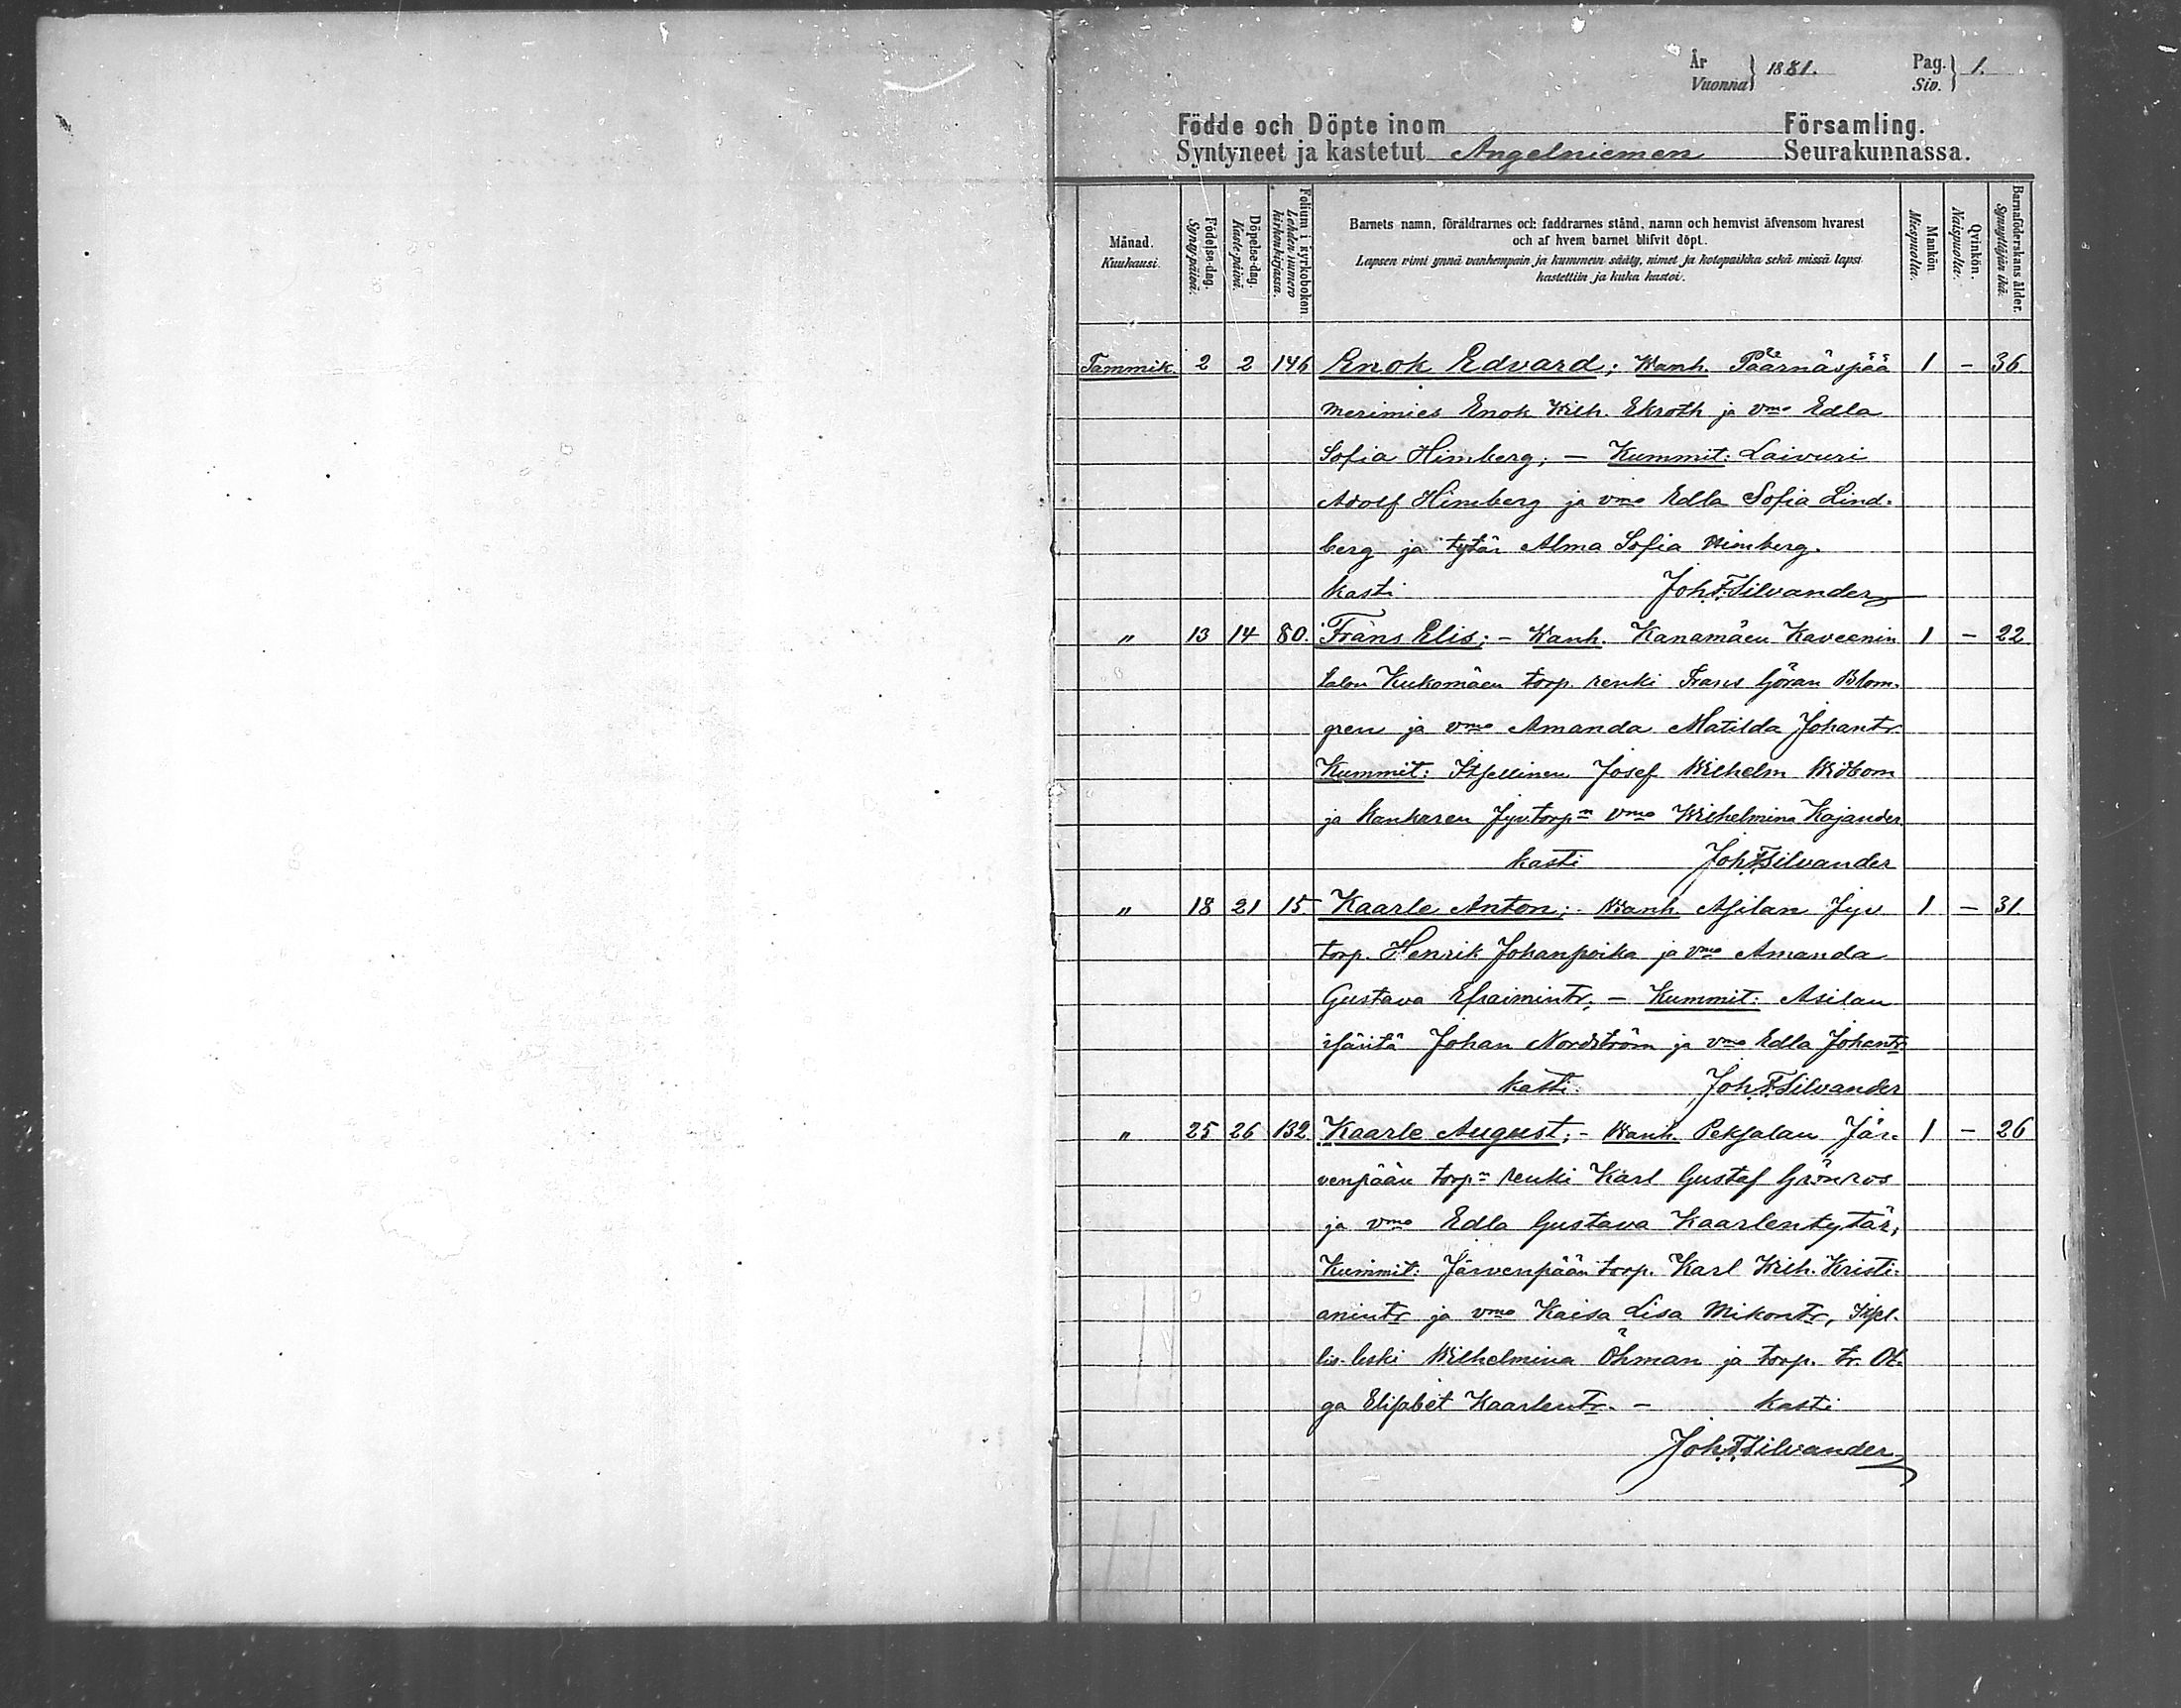 År
Vuonna } 1881. Pag.
Siv. } 1.
Födde och Döpte inom Församling.
Syntyneet ja kastetut Angelniemen Seurakunnassa.
Månad.
Kuukausi.
Födelse-dag.
Syntypäivä.
Döpelse-dag.
Kaste-päivä.
Folium i kyrkoboken
Lehden numero
kirkonkirjassa.
Barnets namn, föräldrarnes och faddrarnes stånd, namn och hemvist äfvensom hvarest
och af hvem barnet blifvit döpt.
Lapsen nimi ynnä vanhempain ja kummein sääty, nimet ja kotopaikka sekä missä lapsi
kastettiin ja kuka kastoi.
Mankön
Miespuolia.
Qvinkön.
Naispuolia.
Barnaföderskans ålder.
Synnyttäjän ikä.
Tammik. 2 2 146 Enok Edvard; Wanh. Päärnäspää 1 – 36
merimies Enok Wilh. Ekroth ja vmo Edla
Sofia Himberg; – Kummit: Laivuri
Adolf Himberg ja vmo Edla Sofia Lind-
berg ja tytär Alma Sofia Himberg.
kasti Joh. F. Silvander
" 13 14 80. Frans Elis; – Wanh. Kanamäen Kaveenin 1 – 22
talon Kukomäen torp. renki Frans Göran Blom-
gren ja vmo Amanda Matilda Johantr.
Kummit: Itsellinen Josef Wilhelm Widbom
ja Kankaren Jyv. torpn vmo Wilhelmina Kajander
kasti Joh. F. Silvander
" 18 21 15 Kaarle Anton; – Wanh. Asilan Jyv 1 – 31.
torp. Henrik Johanpoika ja vmo Amanda
Gustava Efraimintr; – Kummit: Asilan
isäntä Johan Nordström ja vmo Edla Johantr
kasti Joh. F. Silvander
" 25 26 132 Kaarle August; – Wanh. Peksalan Jär- 1 – 26
venpään torpn renki Karl Gustaf Grönros
ja vmo Edla Gustava Kaarlentytär;
Kummit: Järvenpään torp. Karl Wilh. Kristi-
anintr ja vmo Kaisa Lisa Mikontr, Itsel-
lis-leski Wilhelmina Öhman ja torp. tr. Ol-
ga Elisabet Kaarlentr. – kasti
Joh. F. Silvander